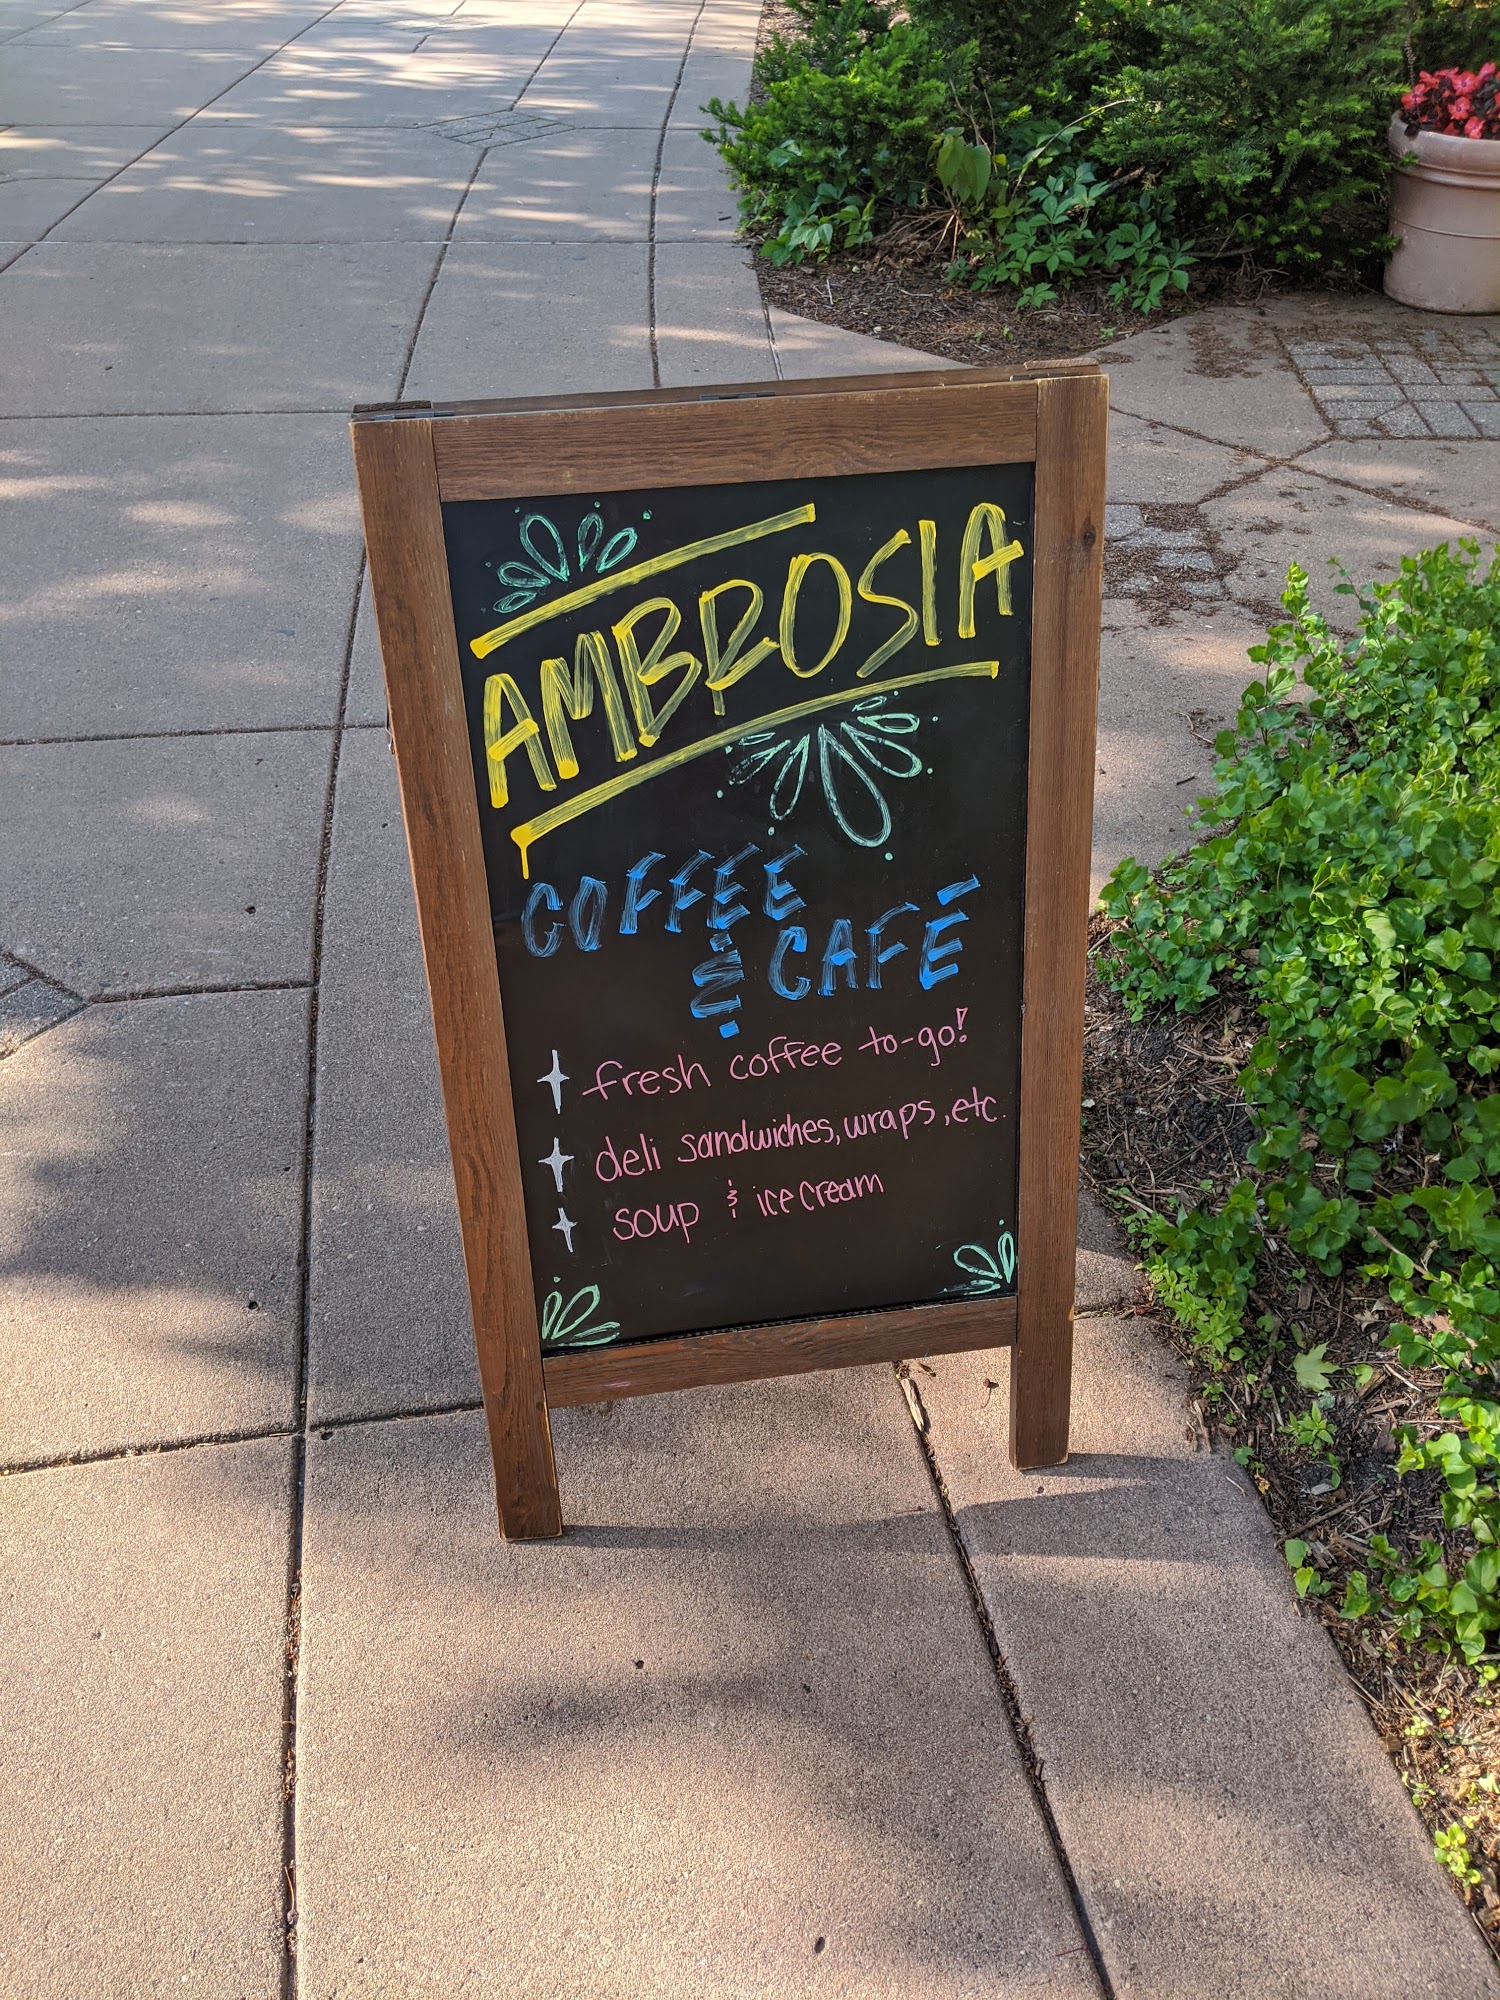 AMBROSIA
COFFEE
& CAFÉ
fresh coffee to-go!
deli sandwiches, wraps, etc.
soup & ice cream